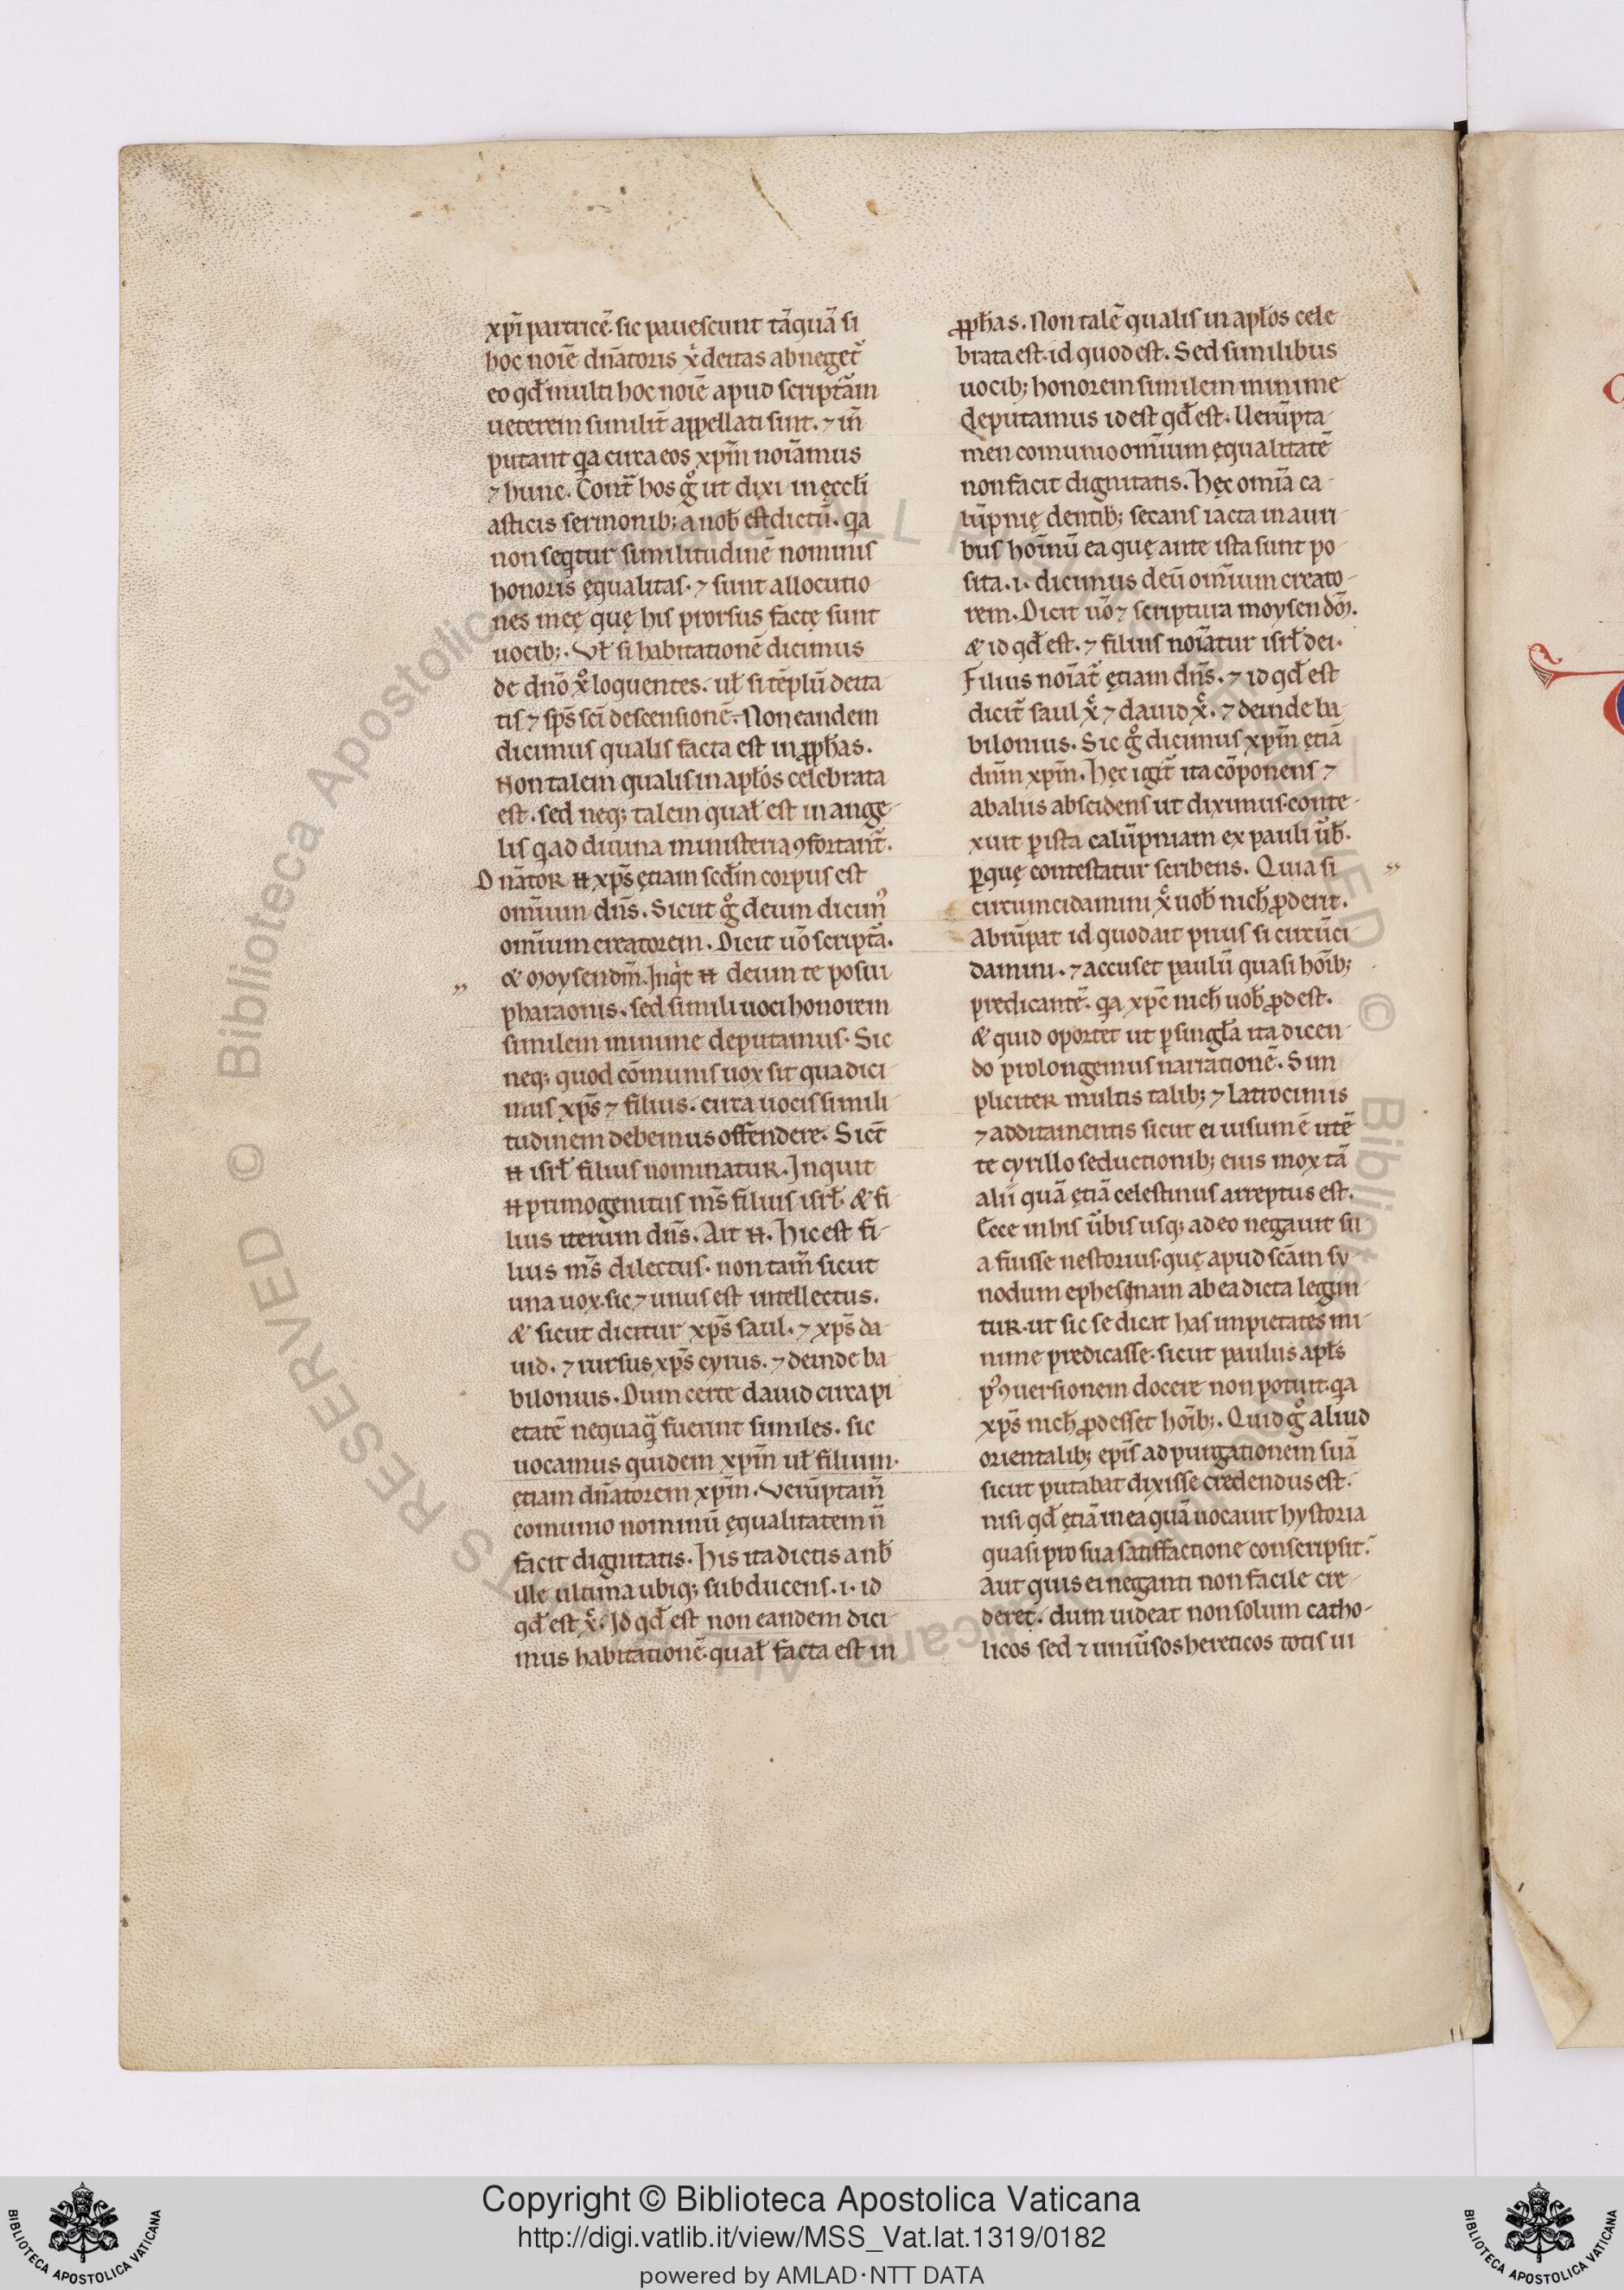 xp̄i partricē. sic pauescunt tāquā si
hoc noīe dn̄atoris x̊ deitas abneget᷑
eo qđ multi hoc noīe apud scriptām
ueterem similit̄ appellati sunt. ⁊ in̄
putant qa circa eos xpm̄ noīamus
⁊ hunc. Cont᷑ hos g̊ ut dixi in ęccłi
asticis sermonib; a uob̄ est dictū. qa
non seqtur similitudinē nominis
honoris ęqualitas. ⁊ sunt allocutio
nes meę quę his prorsus factę sunt
uocib;. Vł si habitationē dicimus
de dn̄o x̊ loquentes. uł si tēplū deita
tis ⁊ sp̄s sc̄i descensionē. Non eandem
dicimus qualis facta est in ꝓph̄as.
Non talem qualis in apłos celebrata
est. sed neq; talem quał est in ange
lis q ad diuina ministeria ꝯfortant᷑.
Dn̄ator n̄ xp̄s ętiam scđm corpus est
omīum dn̄s. Sicut g̊ deum dicim᷒
omīum creatorem. Dicit uō scriptā.
& moysen dm̄. Inqͥt n̄ deum te posui
pharaonis. sed simili uoci honorem
similem minime deputamus. Sic
neq; quod cōmunis uox sit qua dici
mus xp̄s ⁊ filius. circa uocis simili
tudinem debemus offendere. Sict̄
n̄ isrł filius nominatur. Inquit
n̄ primogenitus ms̄ filius isrł. & fi
lius iterum dn̄s. Ait n̄. Hic est fi
lius ms̄ dilectus. non tam̄ sicut
una uox. sic ⁊ unus est intellectus.
& sicut dicitur xp̄s saul. ⁊ xp̄s da
uid. ⁊ rursus xp̄s cyrus. ⁊ deinde ba
bilonius. Dum certe dauid circa pi
etatē nequaq̄ fuerunt similes. sic
uocamus quidem xpm̄ uł filium.
ętiam dn̄atorem xpm̄. Verūptam̄
comunio nominū ęqualitatem n̄
facit dignitatis. His ita dictis a nb̄
ille ultima ubiq; subducens. i. id
qđ est x̊. Id qđ est non eandem dici
mus habitationē. quał facta est in
ꝓph̄as. Non talē qualis in apłos cele
brata est. id quod est. Sed similibus
uocib; honorem similem minime
deputamus id est qđ est. Uerūpta
men comunio omīum ęqualitatē
non facit dignitatis. Hęc omīa ca
lūpnię dentib; secans iacta in auri
bus hoīnū ea quę ante ista sunt po
sita. i. dicimus deū omīum creato
rem. Dicit uō ⁊ scriptura moysen dō.
& id qđ est. ⁊ filius noīatur isrł dei.
Filius noīat᷑ ętiam dn̄s. ⁊ id qđ est
dicit᷑ saul x̊ ⁊ dauid x̊. ⁊ deinde ba
bilonius. Sic g̊ dicimus xpm̄ ętiā
dūm xpm̄. Hęc igit᷑ ita cōponens ⁊
ab aliis abscidens ut diximus. conte
xuit ꝑ ista calūpniam ex pauli ūb̄.
ꝑ quę contestatur scribens. Quia si
circumcidamini x̊ uob̄ nich̄ ꝓderit.
Abrūpat id quod ait prius si circūci
damini. ⁊ accuset paulū quasi hoīb;
predicantē. qa xp̄c nich̄ uob̄ ꝓdest.
& quid oportet ut ꝑ singła ita dicen
do prolongemus narrationē. Sim
pliciter multis talib; ⁊ latrociniis
⁊ additamentis sicut ei uisum ē utē
te cyrillo seductionib; eius mox tā
alii quā ętiā celestinus arreptus est.
Ecce in his ūbis usq; adeo negauit su
a fuisse nestorius. quę apud scām sy
nodum ephesinam ab ea dicta legun
tur. ut sic se dicat has impietates mi
nime predicasse. sicut paulus apłs
p᷒ ꝯuersionem docere non potuit. qa
xp̄s nich̄ ꝓdesset hoīb;. Quid g̊ aliud
orientalib; epīs ad purgationem suā
sicut putabat dixisse credendus est.
nisi qđ ętiā in ea quā uocauit hystoria
quasi pro sua satisfactione conscripsit.
Aut quis ei neganti non facile cre
deret. dum uideat non solum catho
licos sed ⁊ uniūsos hereticos totis ui
Copyright © Biblioteca Apostolica Vaticana
http://digi.vatlib.it/view/MSS_Vat.lat.1319/0182
powered by AMLAD·NTT DATA